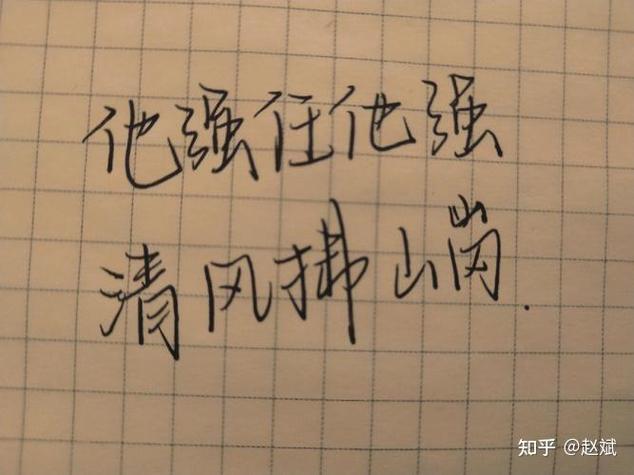 他强任他强
清风拂山岗.
知乎 @赵斌